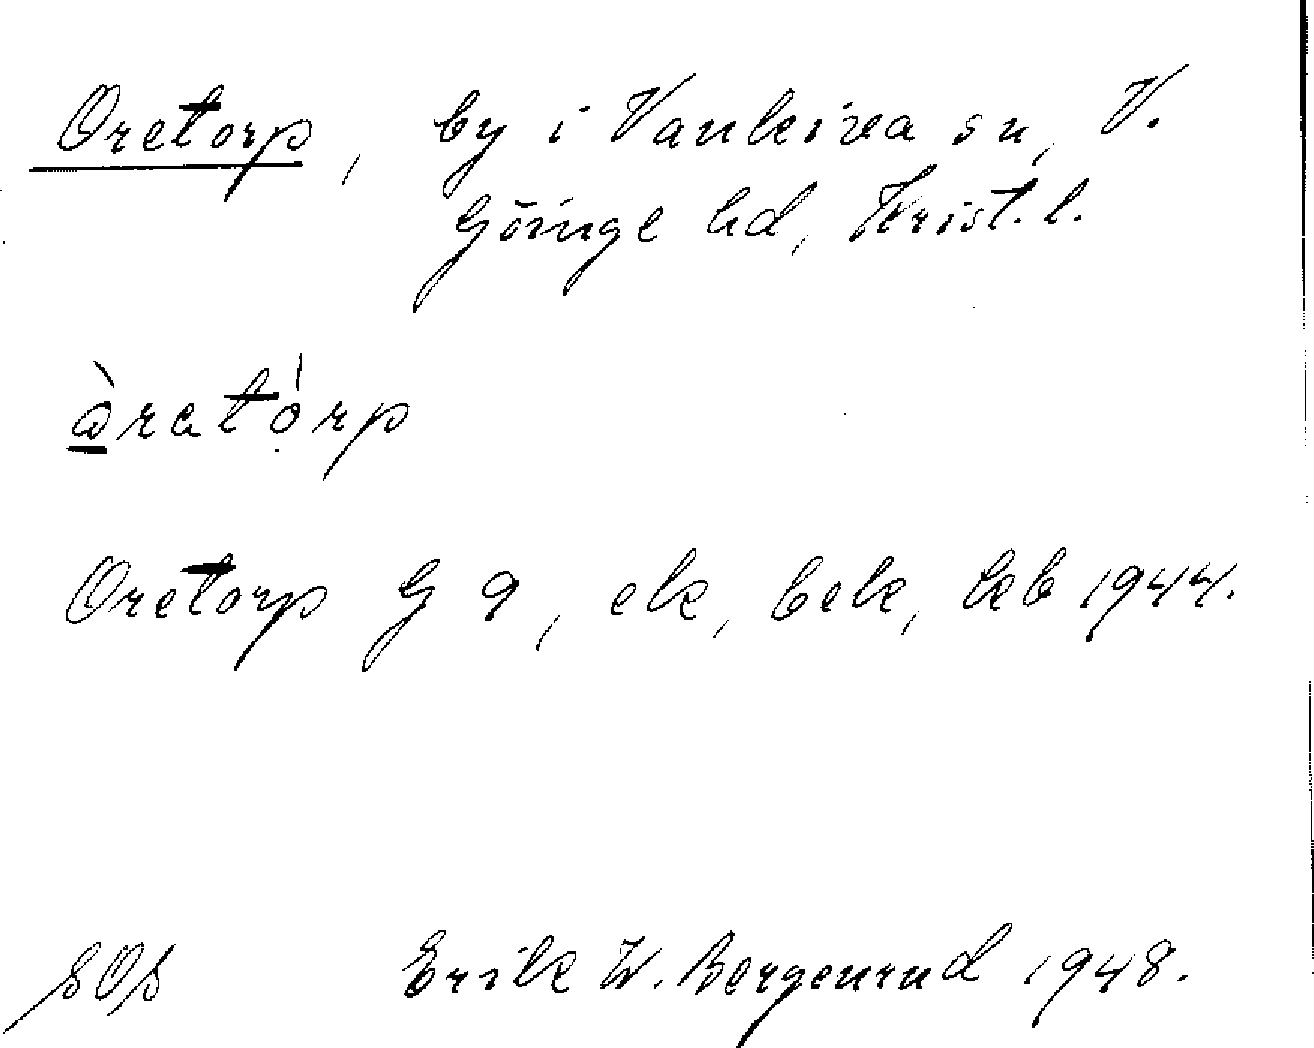 Oretorp, by i Vankiva sn, V.
Göinge hd, Krist. l.
àratórp
Oretorp G 9, ek, bek, kb 1944.
SOS Erik W. Bergenrud 1948.